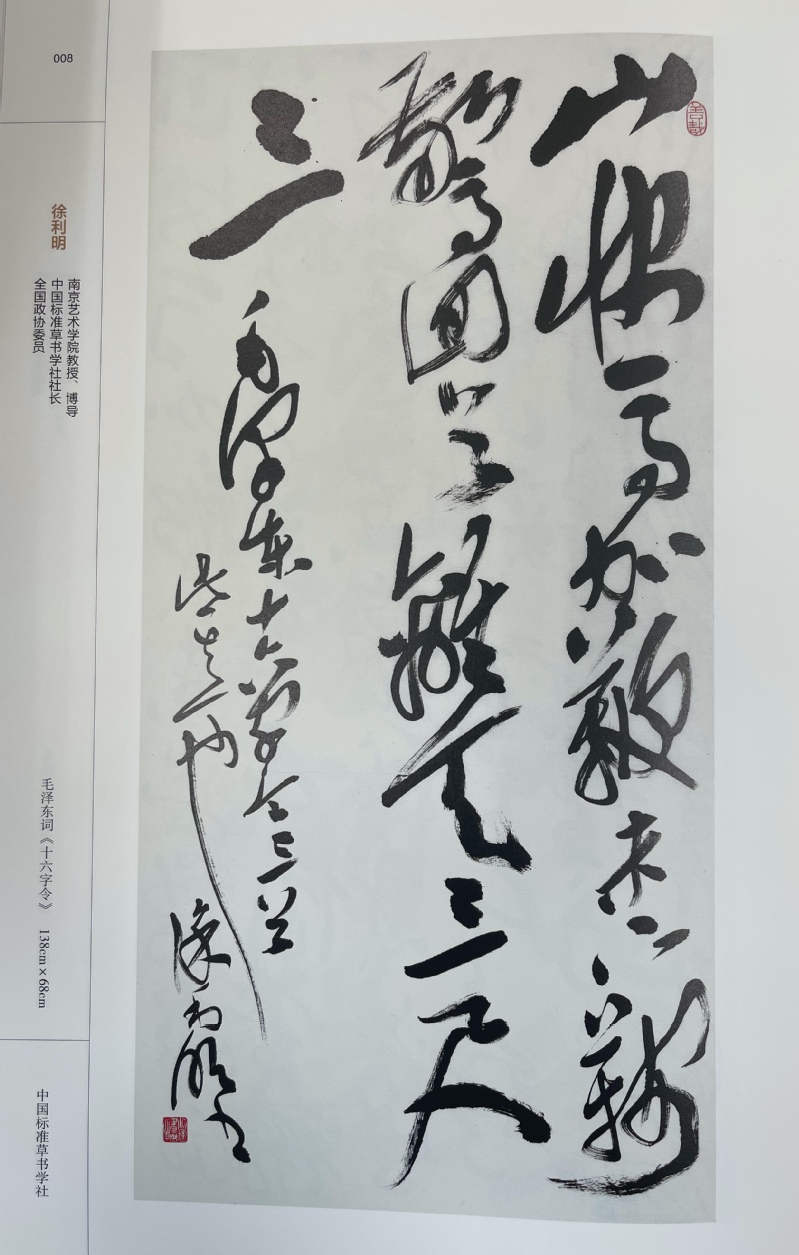 008
徐利明
南京艺术学院教授、博导
中国标准草书学社社长
全国政协委员
毛泽东词《十六字令》 138cm×68cm
中国标准草书学社
山快馬加鞭未下鞍
驚回首離天三尺
三 毛澤東十六字令三首
此其一也 徐利明書